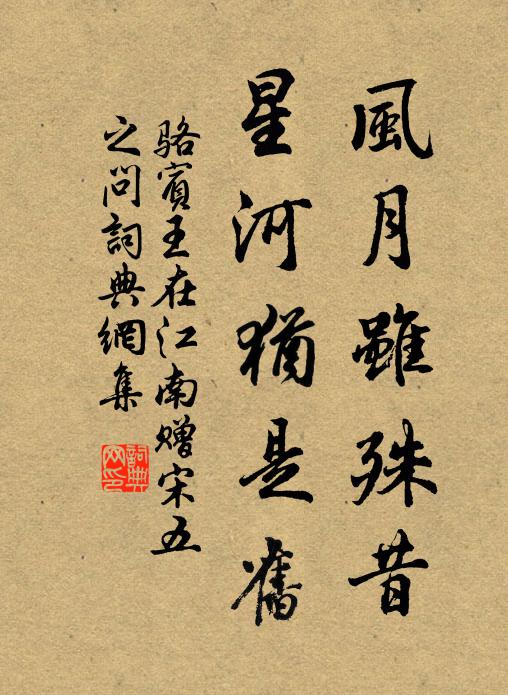 風月雖殊昔
星河猶是舊
駱賓王在江南贈宋五
之問詞典網集
詞典
网印